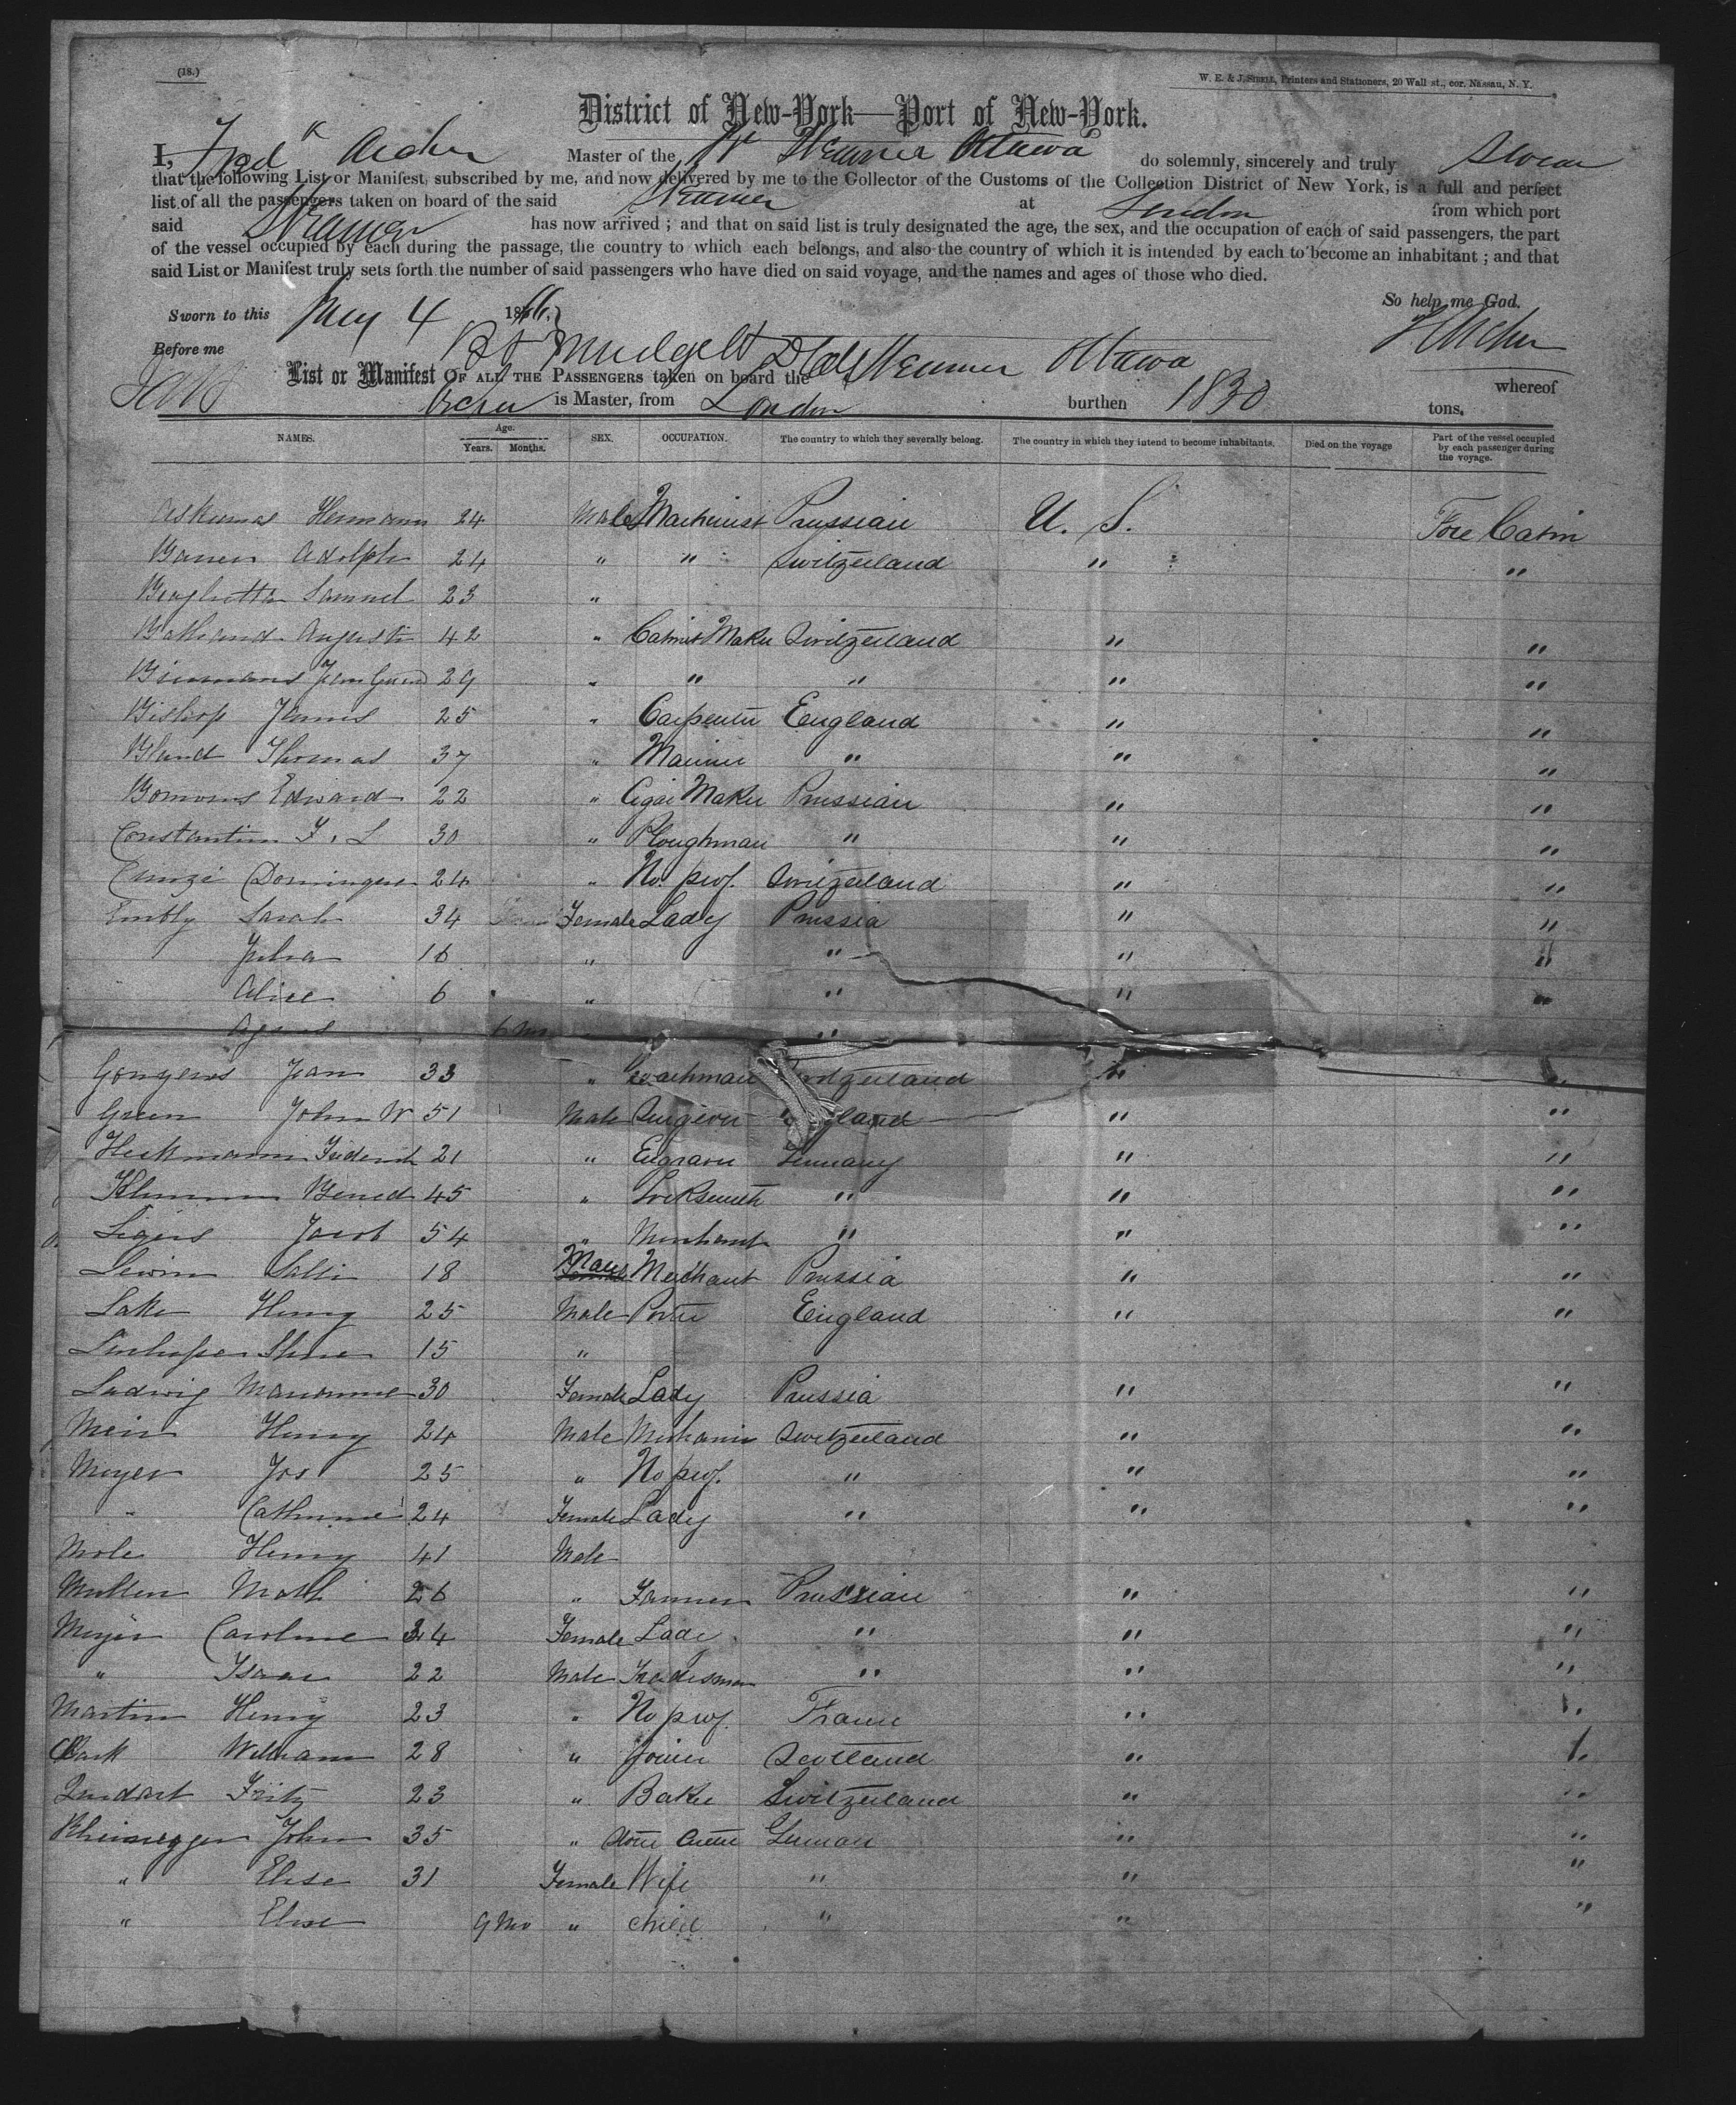 (18.)
W. E. & J. SIBELL, Printers and Stationers, 20 Wall st., cor. Nassau, N. Y.
District of New-York—Port of New-York.
I, Fred k Archer Master of the Br Steamer Ottawa do solemnly, sincerely and truly swear
that the following List or Manifest, subscribed by me, and now delivered by me to the Collector of the Customs of the Collection District of New York, is a full and perfect
list of all the passengers taken on board of the said Steamer at London from which port
said Steamer has now arrived ; and that on said list is truly designated the age, the sex, and the occupation of each of said passengers, the part
of the vessel occupied by each during the passage, the country to which each belongs, and also the country of which it is intended by each to become an inhabitant ; and that
said List or Manifest truly sets forth the number of said passengers who have died on said voyage, and the names and ages of those who died.
So help me God.
Sworn to this May 4 1866,
F Archer
Before me
List or Manifest OF ALL THE PASSENGERS taken on board the Steamer Ottawa whereof
Archer is Master, from London burthen 1830 tons.
NAMES. Age. Years. Months. SEX. OCCUPATION. The country to which they severally belong. The country in which they intend to become inhabitants. Died on the voyage Part of the vessel occupied by each passenger during the voyage.
Hermann 24 Male Machinist Prussian U. S. Fore Cabin
Adolph 24 " " Switzerland " "
Samuel 23 "
August 42 " Cabinet Maker Switzerland " "
29 " " " " "
Bishop James 25 " Carpenter England " "
Bland Thomas 37 " Mariner " " "
Edward 22 " Cigar Maker Prussian " "
Constantin F. L 30 " Ploughman " " "
24 " No. prof. Switzerland " "
Embly Sarah 34 Female Lady Prussia " "
Julia 16 " " " "
Alice 6 " " " "
Agnes 6 Mo "
Gongens Jean 33 " Coachman Switzerland " "
Green John W 51 Male Surgeon England " "
Heckmann Frederick 21 " Engraver Germany " "
Bened 45 " Locksmith " " "
Jacob 54 " Merchant " " "
Lewin Salli 18 Male Merchant Prussia " "
Lake Henry 25 Male Porter England " "
15 "
Ludwig Marianne 30 Female Lady Prussia " "
Henry 24 Male Mechanic Switzerland " "
Meyer Jos 25 " No prof. " " "
" Catherine 24 Female Lady " " "
Mole Henry 41 Male
Mullen 26 " Farmer Prussian " "
Meyer Caroline 34 Female Lady " " "
" Isaac 22 Male Tradesman " " "
Martin Henry 23 " No prof. France " "
William 28 " Joiner Scotland " "
Fritz 23 " Baker Switzerland " "
Rheinegger John 35 " Stone Cutter German " "
" Elise 31 Female Wife " " "
" Elise 9 Mo " child " " "